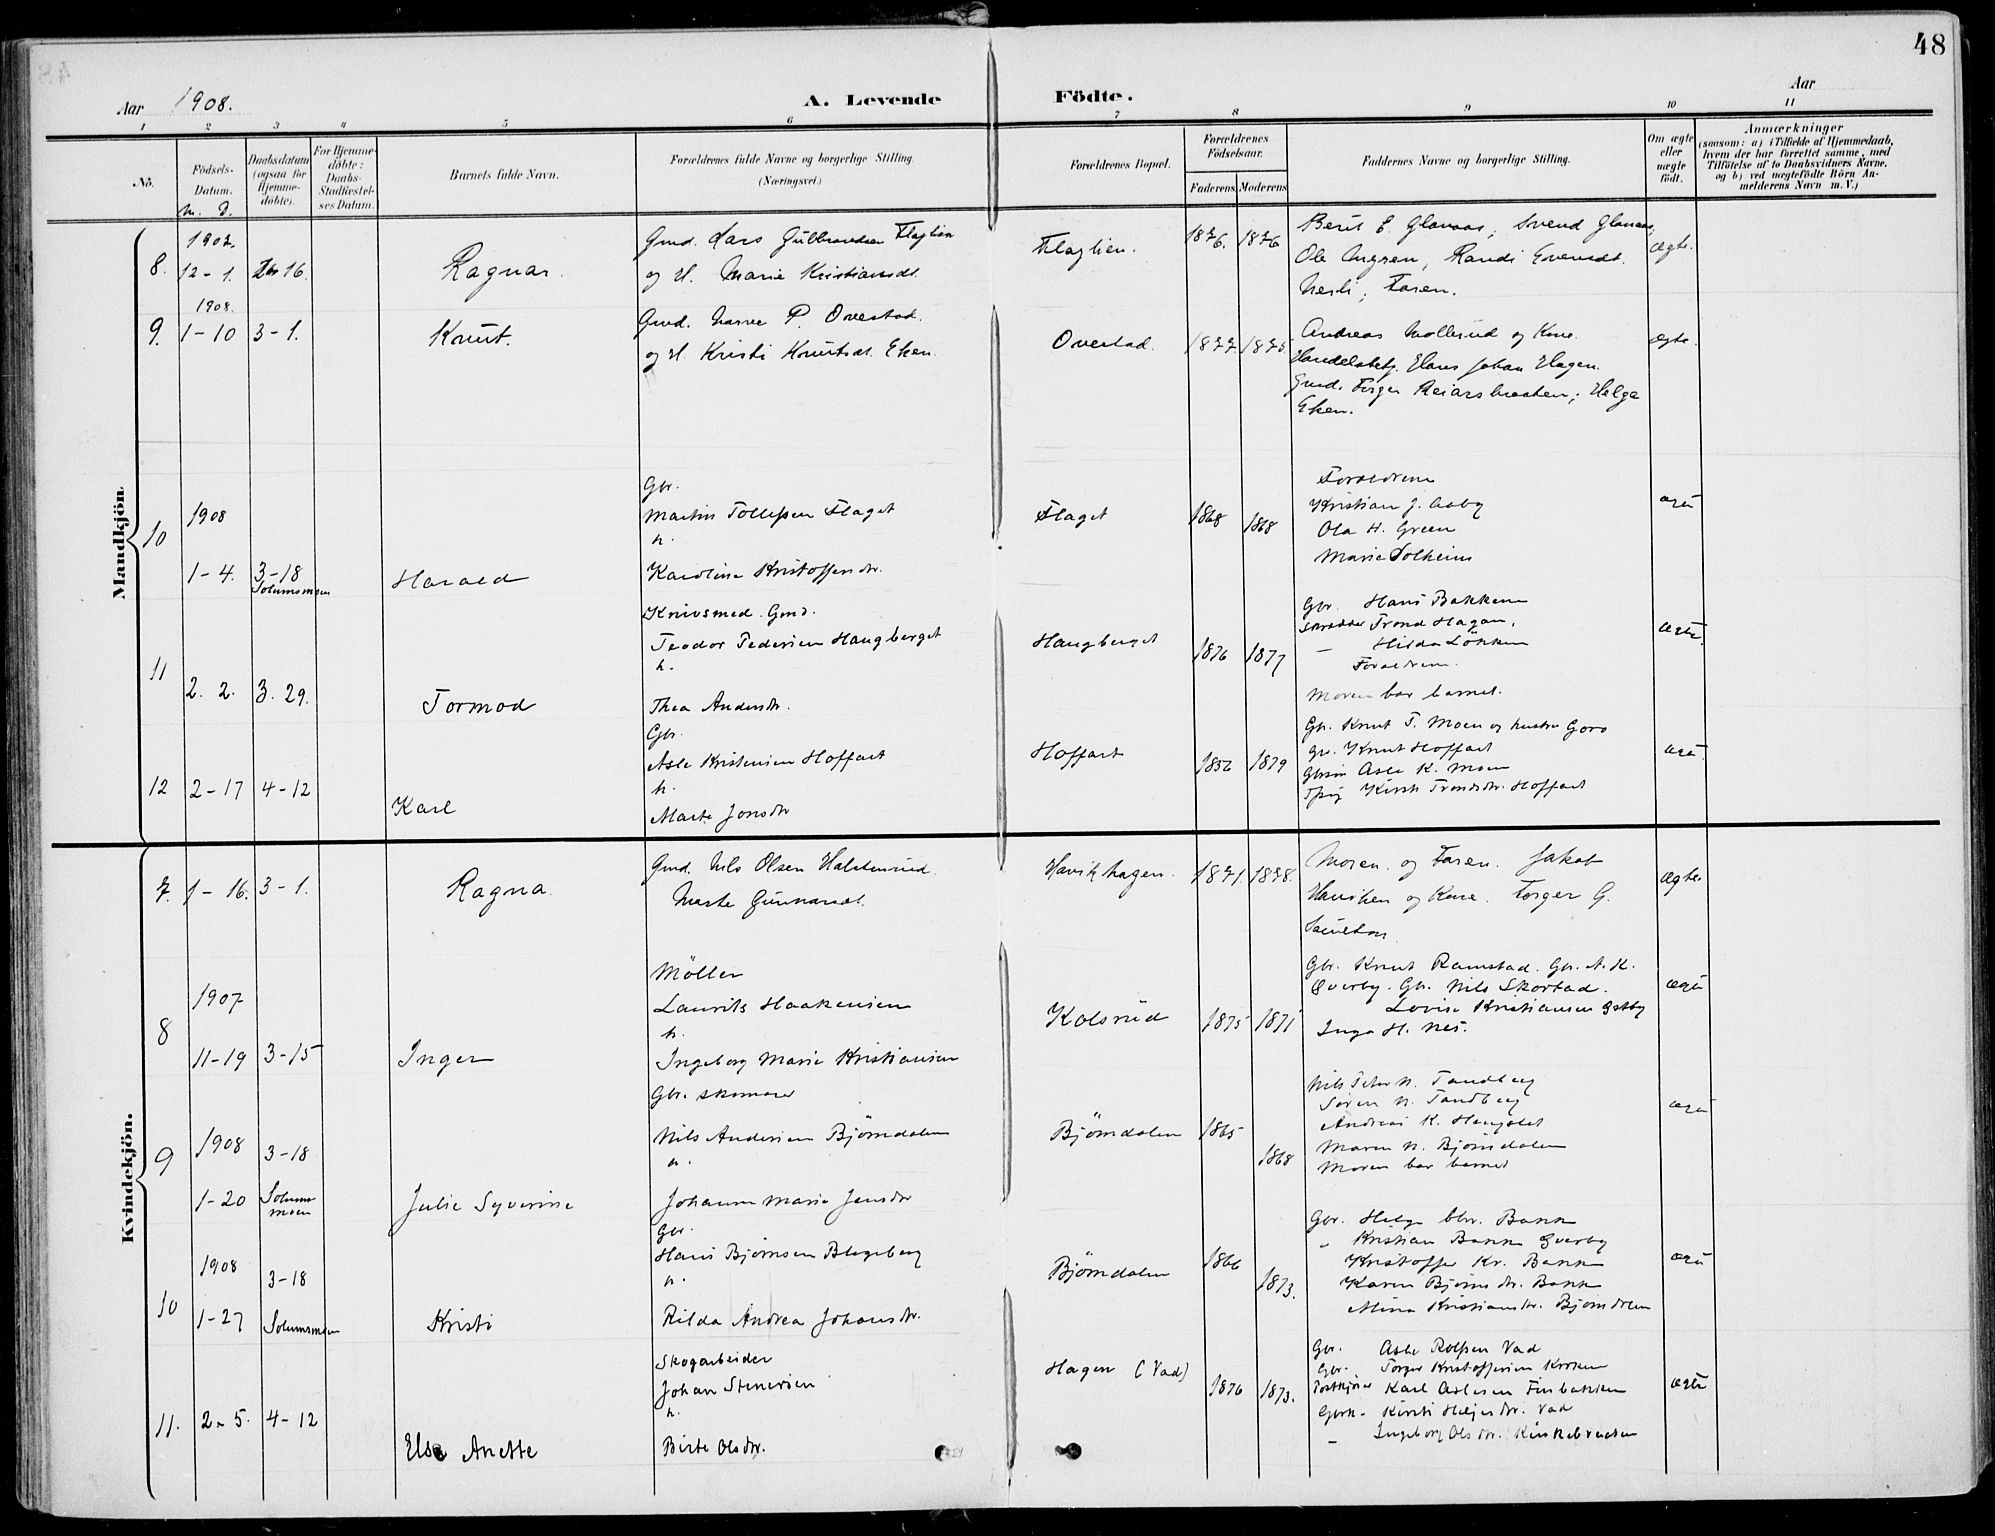 48
Aar 1908.
A. Levende Födte.
Aar
1 2 3 4 5 6 7 8 9 10 11
No.
Födsels-Datum.
m. d.
Daabsdatum (ogsaa for Hjemme-döbte).
For Hjemme-döbte: Daabs-Stadfæstel-ses Datum.
Barnets fulde Navn.
Forældrenes fulde Navne og borgerlige Stilling. (Næringsvei.)
Forældrenes Bopæl.
Forældrenes Födselsaar.
Faderens. Moderens.
Faddernes Navne og borgerlige Stilling.
Om ægte eller uægte födt.
Anmærkninger
(saasom: a) i Tilfælde af Hjemmedaab, hvem der har forrettet samme, med Tilföielse af to Daabsvidners Navne, og b) ved uægtefödte Börn An-melderens Navn m. V.)
Mandkjön.
8. 1907. 12-1. 16. Ragnar.
Gmd. Lars Gulbrandsen Flaglien
og H. Marie Kristiansdt.
Flaglien. 1876. 1876
Berit E. Glavaas, Svend Glavaas,
Ole Randi Evensdt.
Faren.
ægte.
9. 1908. 1-10 3-1. Knut.
Gmd. P. Overstad.
og H. Kristi Knutsdt. Eken.
Overstad. 1877 1875.
Andreas Mollerud og Kone.
Handelsbetj. Hans Johan Hagen.
Gmd. Torger ; Helge
Eken.
ægte.
10 1908 1-4. 3-18 Solumsmoen Harald
Gbr.
Martin Tollefsen Flaget
h.
Karoline Kristoffersdtr.
Flaget 1868 1868
Forældrene
Kristian J. Aasby
Ola H. Green
Marie Solheim
ægte
11 2. 2. 3. 29. Tormod
Knivsmed. Gmd.
Teodor Pedersen Haugberget
h.
Thea Andersdtr.
Haugberget 1876 1877
Gbr. Hans Bakken
Skrædder Trond Hagan,
— Hilda Lökken
Forældrene.
Moren bar barnet.
ægte
12 2-17 4-12 Karl
Gbr.
Asle Kristensen Hoffart
h.
Marte Jonsdtr
Hoffart 1856 1879
Gbr. Knut T. Moen og hustru Goro
gbr. Knut Hoffart
Gbrsön Asle K. Moen
Kirsti Trondsdtr. Hoffart
ægte
Kvindekjön.
7. 1-16. 3-1. Ragna.
Gmd. Nils Olsen Halstensrud.
Marte Gunnarsdt.
Havikhagen. 1871. 1878.
Moren og Faren. Jakob
Haviken og Kone. Torger G.
ægte.
8 1907 11-19 3-15 Inger
Möller
Laurits Haakensen
h.
Ingeborg Marie Kristiansen
Kolsrud 1875 1871
Gbr. Knut Ramstad. Gbr. A. K.
Överby. Gbr. Nils Skortad.
Lovise Kristiansen Östby
Inga H. Nes.
ægte
9 1908 1-20 3-18 Solumsmoen Julie Syverine
Gbr. skomaker
Nils Andersen Björndalen
h.
Johanne Marie Jensdtr
Björndalen 1865 1868
Nils Peter N. Tandberg
Sören N. Tandberg
Andreas K.
Maren N. Björndalen
Moren bar barnet
ægte
10 1908 1-27 3-18 Solumsmoen Kristi
Gbr.
Hans Björnsen Blegeberg
h.
Rilda Andrea Johansdtr.
Björndalen 1866 1873.
Gbr. Helge Bakke
" Kristian Bakke Överby
Kristoffer Kr. Bakke
Karen Björnsdtr. Bakke
Mina Kristiansdtr. Björndalen
ægte
11. 2-5. 4-12 Else Anette
Skogarbeider
Johan Stenersen
h.
Birte Olsdtr.
Hagen (Vad) 1876 1873.
Gbr. Asle Rolfsen Vad
Gbr. Torger Kristoffersen Kroken
Postkjörer Karl Aslesen Finbakken
Kirsti Helgesdtr. Vad
— Ingeborg Olsdtr. Kirkebraaten
ægte